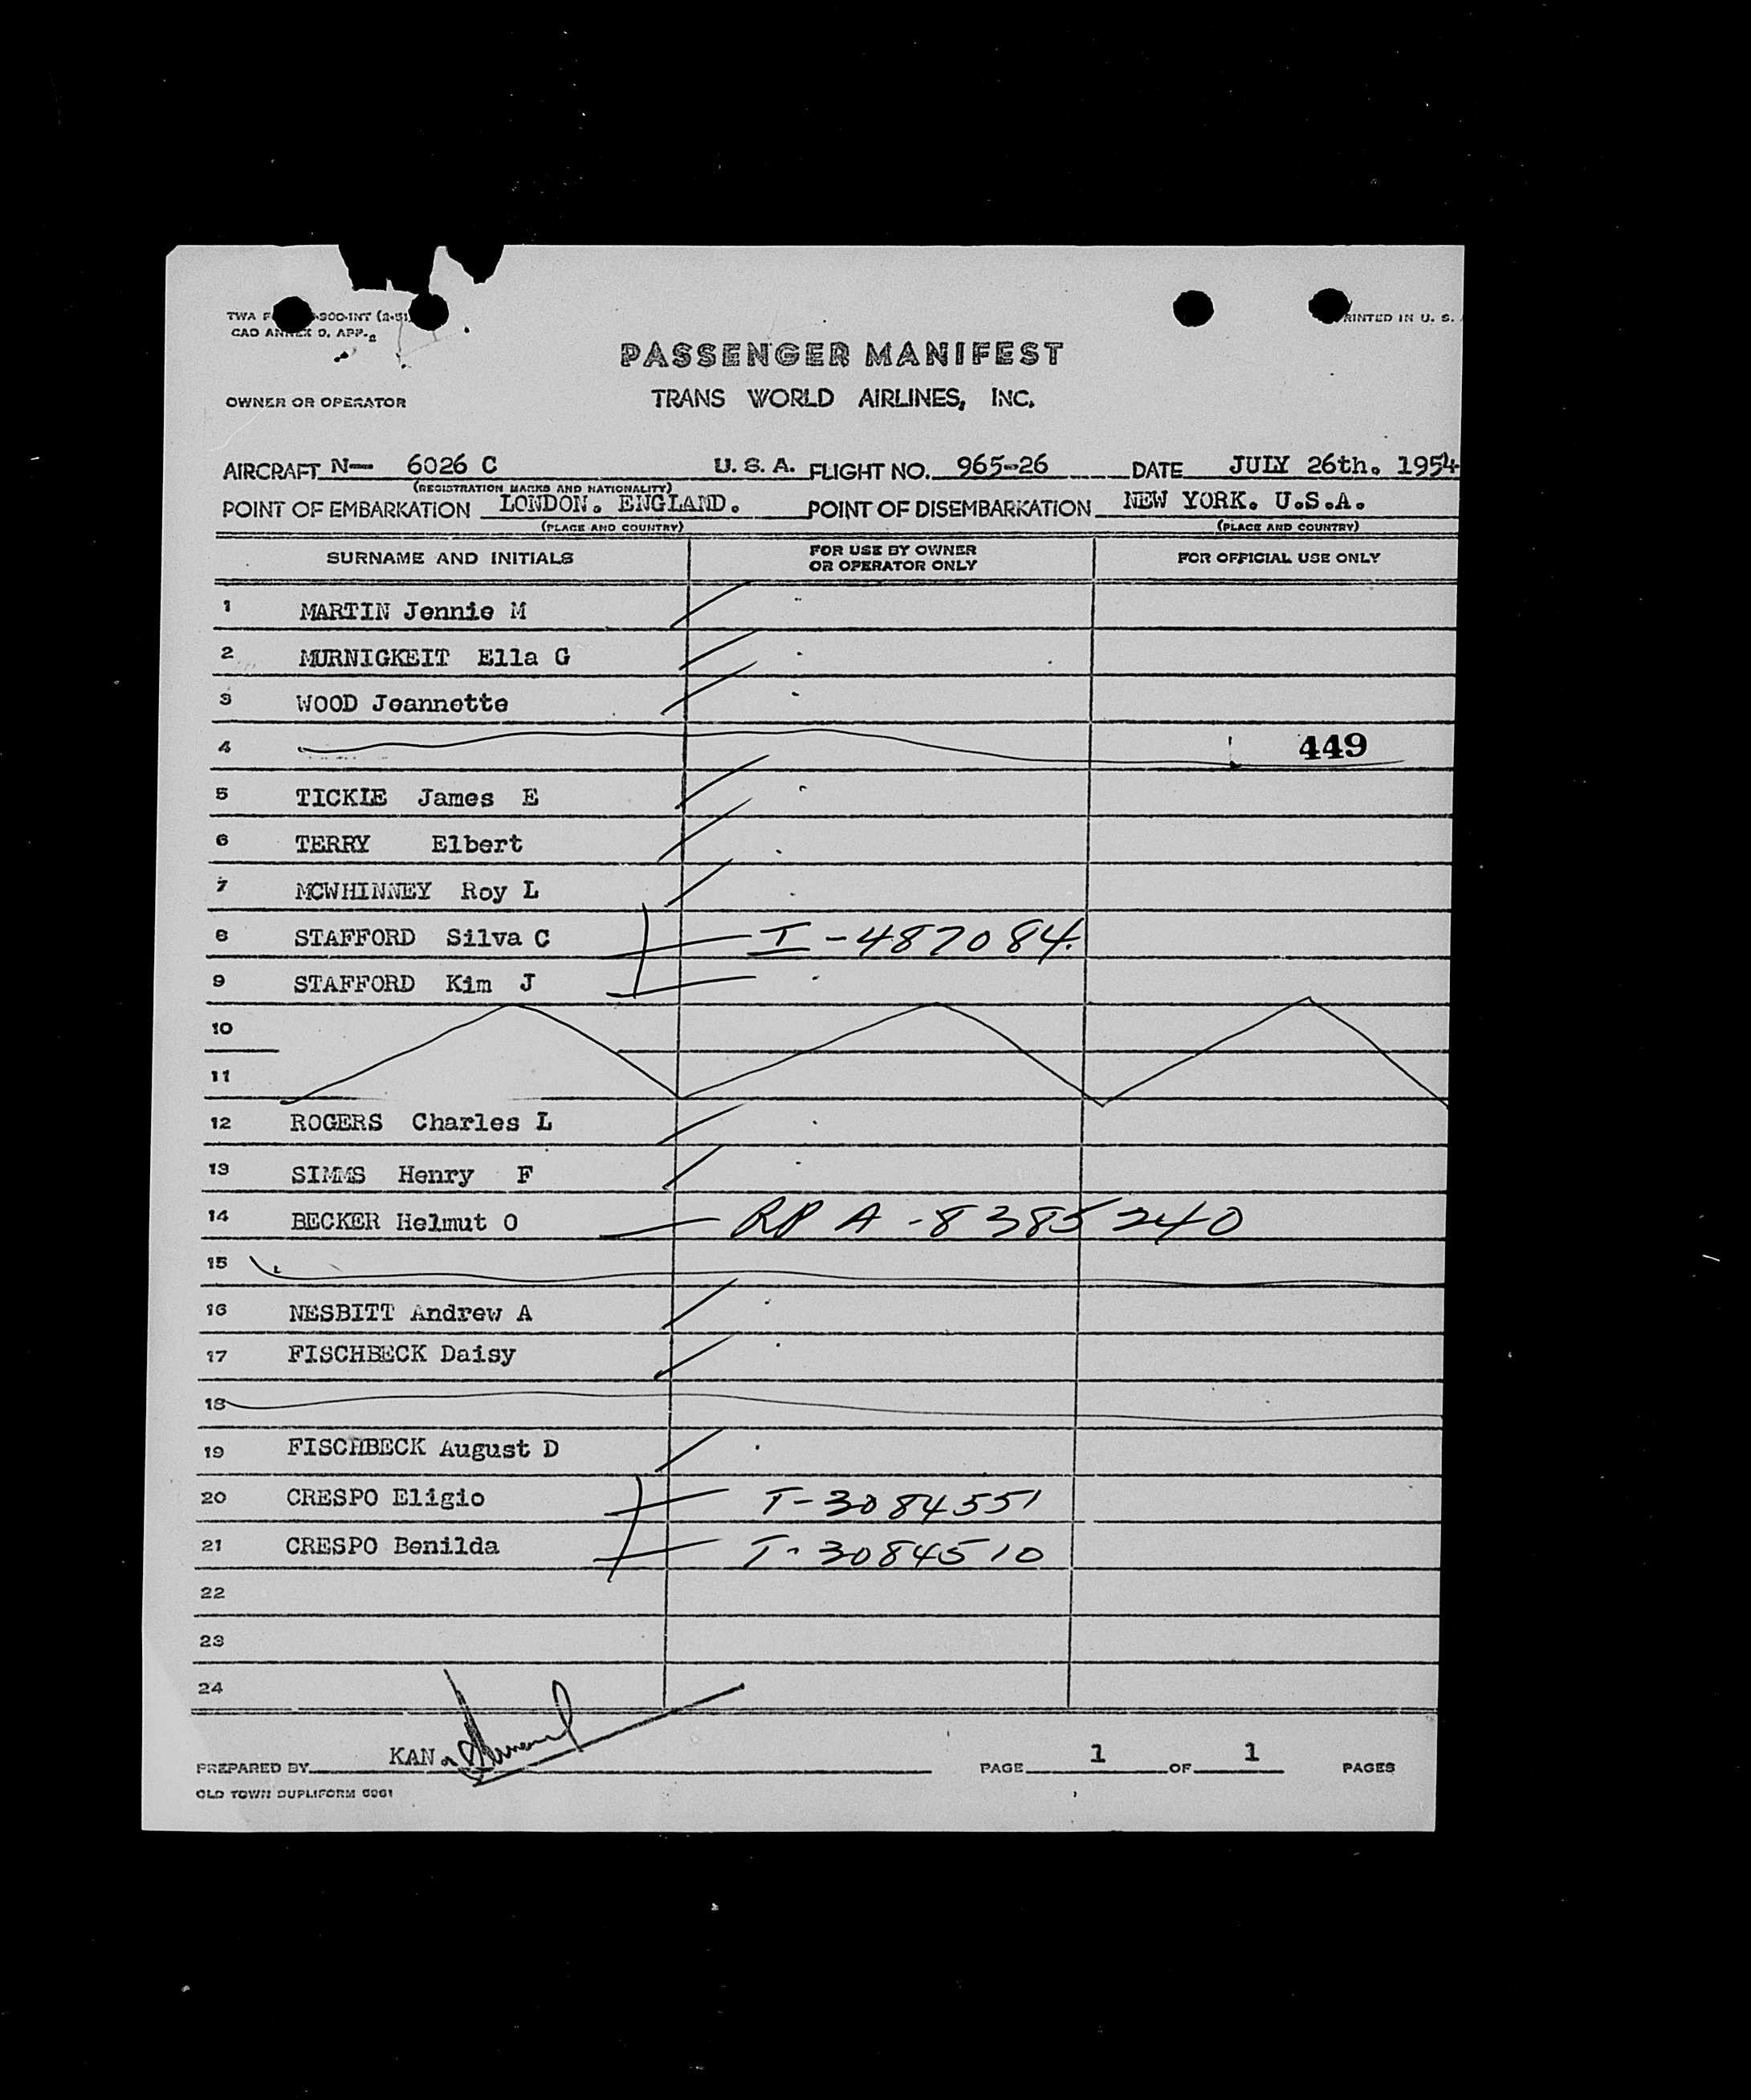 PRINTED IN U. S.
CAO ANNEX 9. APP.
PASSENGER MANIFEST
OWNER OR OPERATOR TRANS WORLD AIRLINES, INC.
AIRCRAFT N— 6026 C U. S. A. FLIGHT NO. 965-26 DATE JULY 26th. 1954
(REGISTRATION MARKS AND NATIONALITY)
POINT OF EMBARKATION LONDON. ENGLAND. POINT OF DISEMBARKATION NEW YORK. U.S.A.
(PLACE AND COUNTRY) (PLACE AND COUNTRY)
SURNAME AND INITIALS FOR USE BY OWNER OR OPERATOR ONLY FOR OFFICIAL USE ONLY
1 MARTIN Jennie M
2 MURNIGKEIT Ella G
3 WOOD Jeannette
4 449
5 TICKLE James E
6 TERRY Elbert
7 MCWHINNEY Roy L
8 STAFFORD Silva C I-487084.
9 STAFFORD Kim J
10
11
12 ROGERS Charles L
13 SIMMS Henry F
14 BECKER Helmut O RP A-8385240
15
16 NESBITT Andrew A
17 FISCHBECK Daisy
18
19 FISCHBECK August D
20 CRESPO Eligio T-3084551
21 CRESPO Benilda T-3084510
22
23
24
PREPARED BY KAN. PAGE 1 OF 1 PAGES
OLD TOWN DUPLIFORM